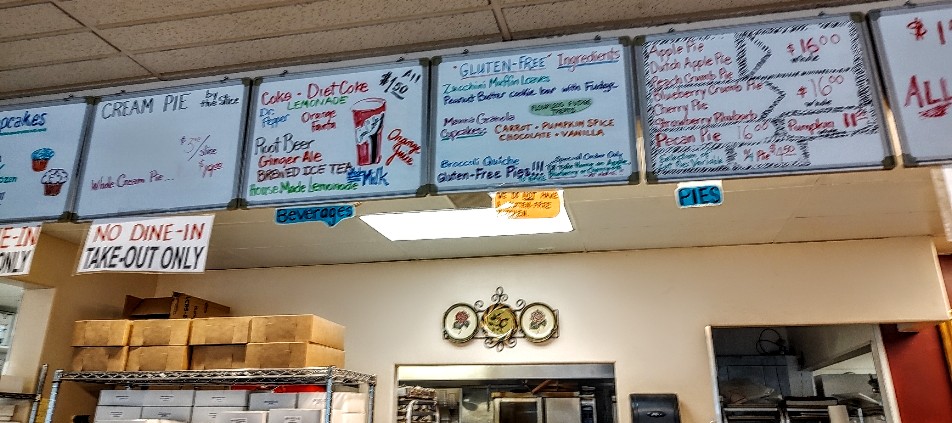 pcakes
CREAM PIE by the Slice
Whole Cream Pie...
Coke - Diet Coke
LEMONADE
Dr. Pepper
Orange Fanta
Root Beer
Ginger Ale
BREWED ICE TEA
House Made Lemonade
Milk
Orange Juice
"GLUTEN-FREE" Ingredients
Zucchini Muffin Loaves
Peanut Butter cookie bar with Fudge
FLOURLESS FUDGE
Manna Granola
Cupcakes: CARROT • PUMPKIN SPICE
CHOCOLATE • VANILLA
Broccoli Quiche
Gluten-Free Pies!!!
Special Order Only
Apple Pie
Dutch Apple Pie
Peach Crumb Pie
Blueberry Crumb Pie
Cherry Pie
Strawberry Rhubarb
Pecan Pie 16.00
$16.00
whole
$16.00
whole
Pumpkin
Beverages
WE DO NOT HAVE
PIES
E-IN
ONLY
NO DINE-IN
TAKE-OUT ONLY